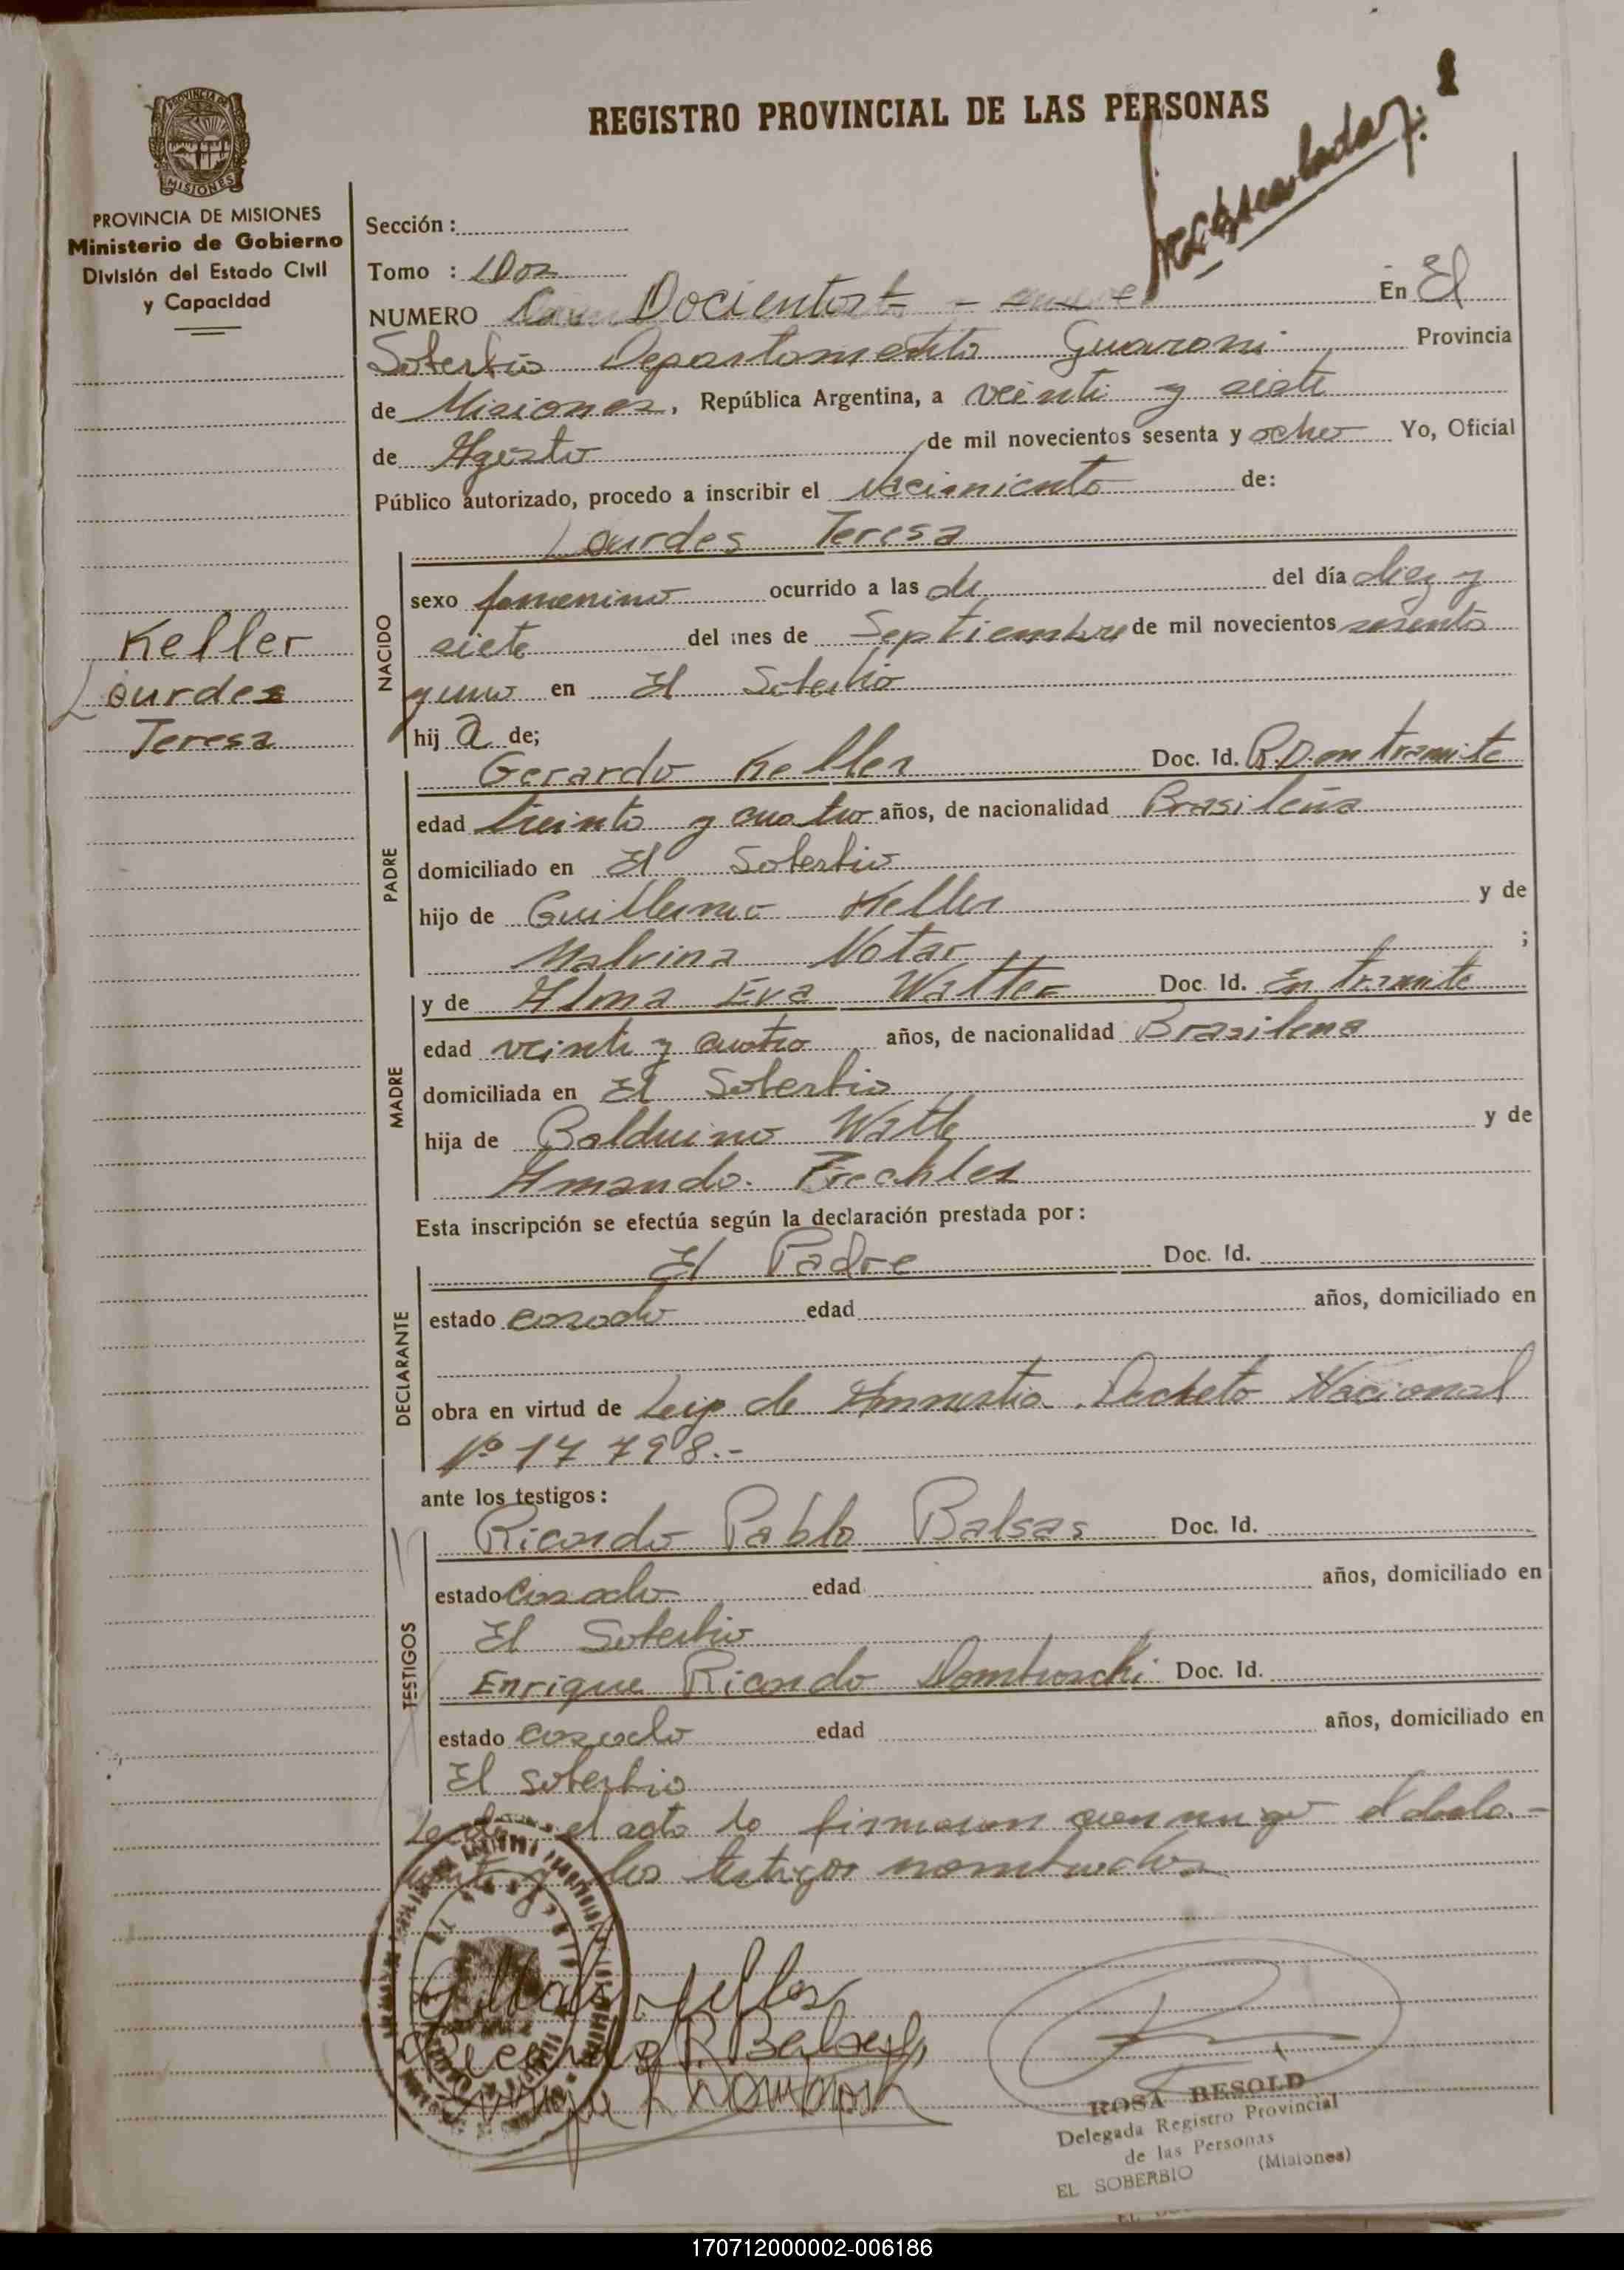 REGISTRO PROVINCIAL DE LAS PERSONAS
PROVINCIA DE
MISIONES
PROVINCIA DE MISIONES
Ministerio de Gobierno
División del Estado Civil
y Capacidad
Keller
Lourdes
Teresa
Sección :
Tomo : Dos
NUMERO Docientos En El
Soberbio Departamento Guarani Provincia
de Misiones, República Argentina, a veinti y siete
de Agosto de mil novecientos sesenta y ocho Yo, Oficial
Público autorizado, procedo a inscribir el Nacimiento de:
Lourdes Teresa
NACIDO
sexo femenino ocurrido a las de del día diez y
siete del mes de Septiembre de mil novecientos sesenta
y uno en El Soberbio
hij a de;
PADRE
Gerardo Keller Doc. Id. R.D. en tramite
edad treinta y cuatro años, de nacionalidad Brasileña
domiciliado en El Soberbio
hijo de Guillermo Keller y de
Malvina Notar ;
MADRE
y de Alma Eva Watter Doc. Id. En tramite
edad veinti y cuatro años, de nacionalidad Brasilena
domiciliada en El Soberbio
hija de Balduino Watte y de
Amanda
Esta inscripción se efectúa según la declaración prestada por:
DECLARANTE
El Padre Doc. Id.
estado casado edad años, domiciliado en
obra en virtud de Leip de Amnistia. Decreto Nacional
Nº 17 798.-
ante los testigos:
TESTIGOS
Ricardo Pablo Balsas Doc. Id.
estado casado edad años, domiciliado en
El Soberbio
Enrique Ricardo Domboschi Doc. Id.
estado casado edad años, domiciliado en
El soberbio
el acta lo firmaron conmigo el decla.-
los testigos nombrados
Keller
ROSA BESOLD
Delegada Registro Provincial
de las Personas
EL SOBERBIO (Misiones)
170712000002-006186